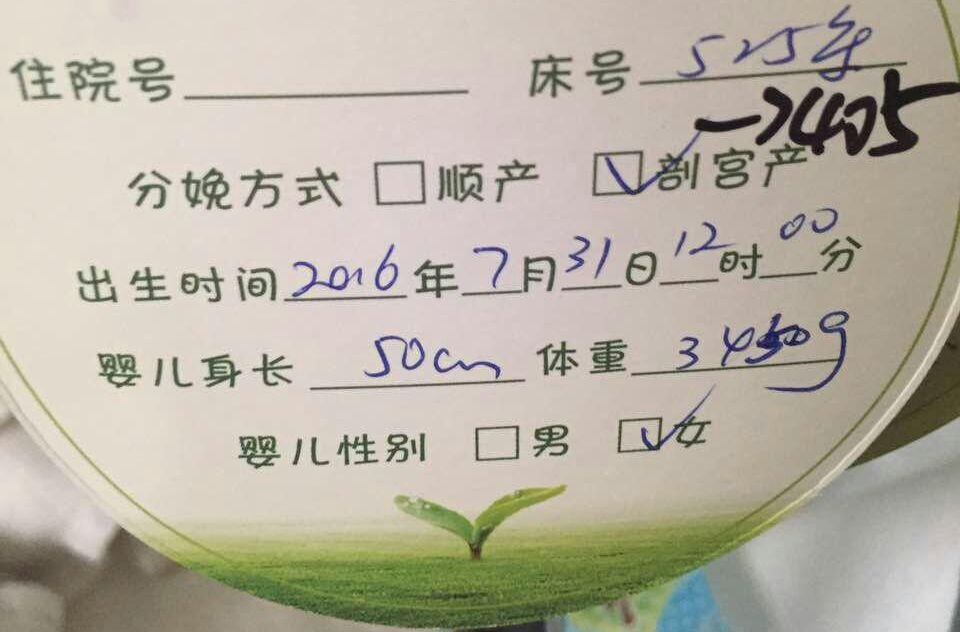 住院号 床号 525
→2405
分娩方式 □顺产 ☑剖宫产
出生时间 2016年7月31日12时00分
婴儿身长 50cm 体重 3450g
婴儿性别 □男 ☑女